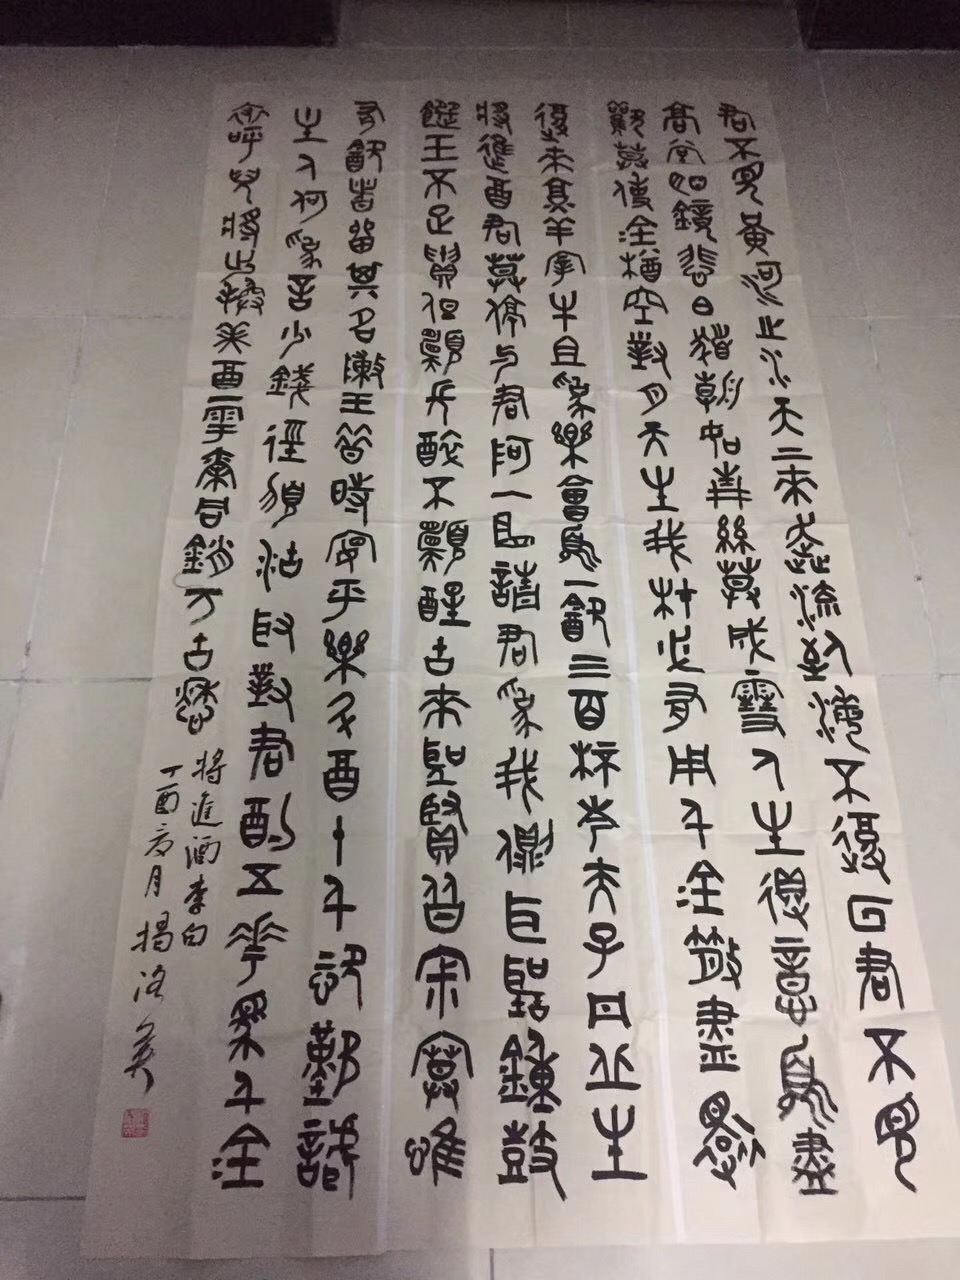 君不見黃河之水天上來奔流到海不復回君不見
高堂明鏡悲白髮朝如青絲暮成雪人生得意須盡
歡莫使金樽空對月天生我材必有用千金散盡還
復來烹羊宰牛且為樂會須一飲三百杯岑夫子丹丘生
將進酒君莫停與君歌一曲請君為我側耳聽鐘鼓
饌玉不足貴但願長醉不願醒古來聖賢皆寂寞惟
有飲者留其名陳王昔時宴平樂斗酒十千恣歡謔
主人何為言少錢徑須沽取對君酌五花馬千金
裘呼兒將出換美酒與爾同銷萬古愁
將進酒李白
丁酉月